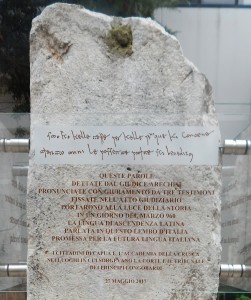 kelle kelle que ki contene
anni le possette parte
QUESTE PAROLE
DETTATE DAL GIUDICE ARECHISI
PRONUNCIATE CON GIURAMENTO DA TRE TESTIMONI
FISSATE NELL'ATTO GIUDIZIARIO
PORTARONO ALLA LUCE DELLA STORIA
IN UN GIORNO DEL MARZO 960
LA LINGUA DI ASCENDENZA LATINA
PARLATA IN QUESTO LEMBO D'ITALIA
PROMESSA PER LA FUTURA LINGUA ITALIANA
I CITTADINI DI CAPUA E L'ACCADEMIA DELLA CRUSCA
NEI LUOGHI LA CORTE E IL TRIBUNALE
DEI PRINCIPI LONGOBARDI
MAGGIO 2017